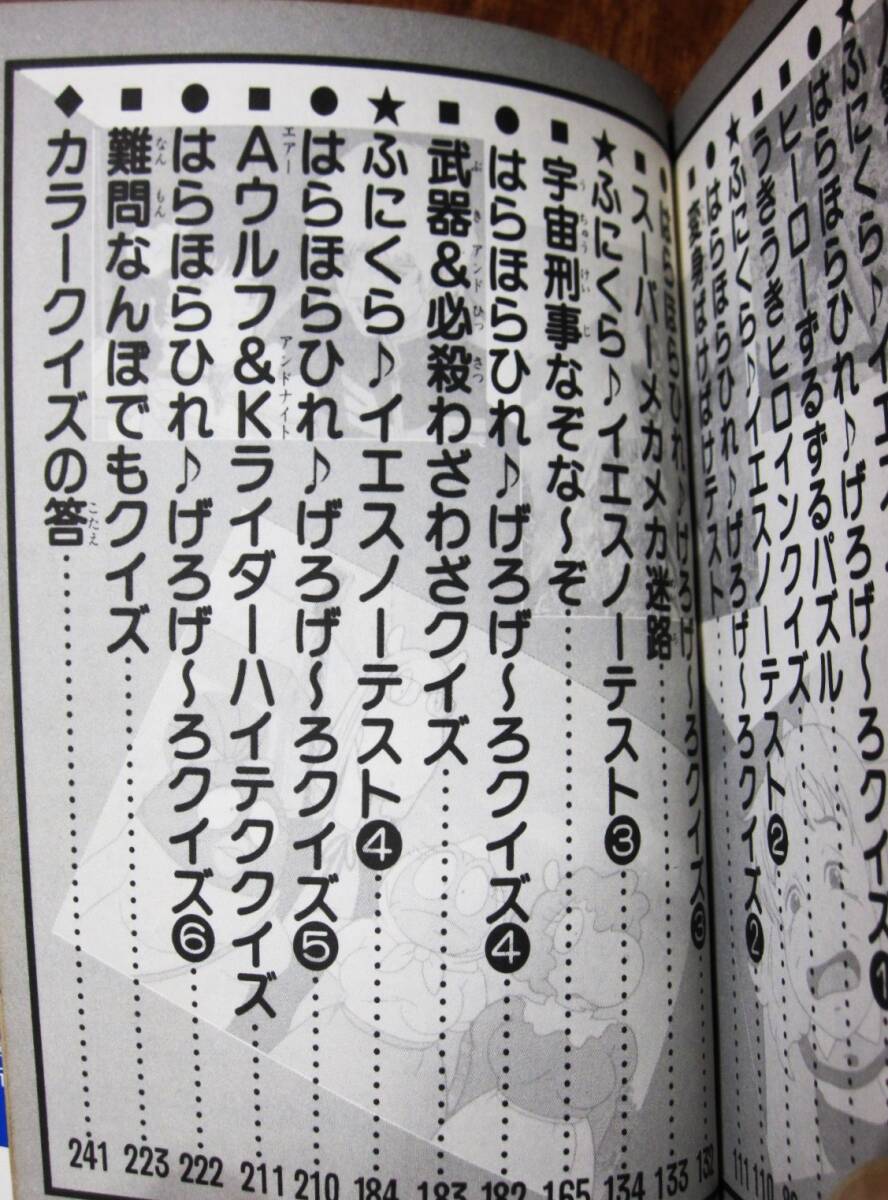 ふにくら♪イエス
はらほらひれ♪げろげ～ろクイズ❶
ヒーローずるずるパズル
うきうきヒロインクイズ 110
★ふにくら♪イエスノーテスト❷ 111
●はらほらひれ♪げろげ～ろクイズ❷
■変身ばけばけテスト
●はらほらひれ♪げろげ～ろクイズ❸ 132
■スーパーメカメカ迷路 133
★ふにくら♪イエスノーテスト❸ 134
■宇宙刑事なぞな～ぞ 165
●はらほらひれ♪げろげ～ろクイズ❹ 182
■武器&必殺わざわざクイズ 183
★ふにくら♪イエスノーテスト❹ 184
●はらほらひれ♪げろげ～ろクイズ❺ 210
■Aウルフ&Kライダーハイテククイズ 211
●はらほらひれ♪げろげ～ろクイズ❻ 222
■難問なんぼでもクイズ 223
◆カラークイズの答 241